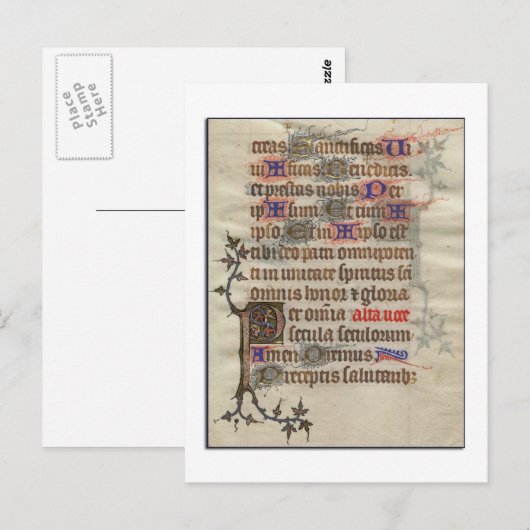 Place
Stamp
Here
zzle
creas Sanctificas Ui
ui ficas Benedicis.
et prestas nobis Per
ip sum Et cum
ipso Et in ipso est
tibi deo patri omnipoten
ti in unitate spiritus sci
omnis honor & gloria
Per omnia alta uoce
secula seculorum
Amen Oremus
Preceptis salutarib: